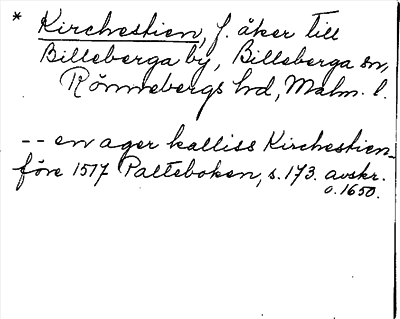 * Kirchestien, f. åker till
Billeberga by, Billeberga sn,
Rönnebergs hd, Malm. l.
-- en ager kalliss Kirchestien
före 1517 Palteboken, s. 173. avskr.
o. 1650.